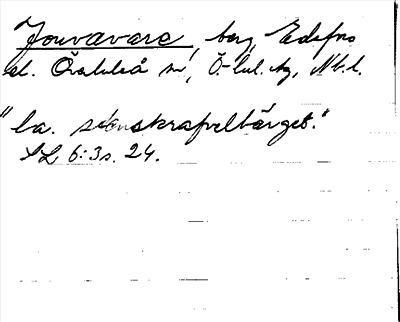 Jouvavare, berg, Edefors
sn. Överluleå sn, Ö-lul. tg, Nb.l.
"ba. stenskravelbärget."
SL 6:3 s. 24.